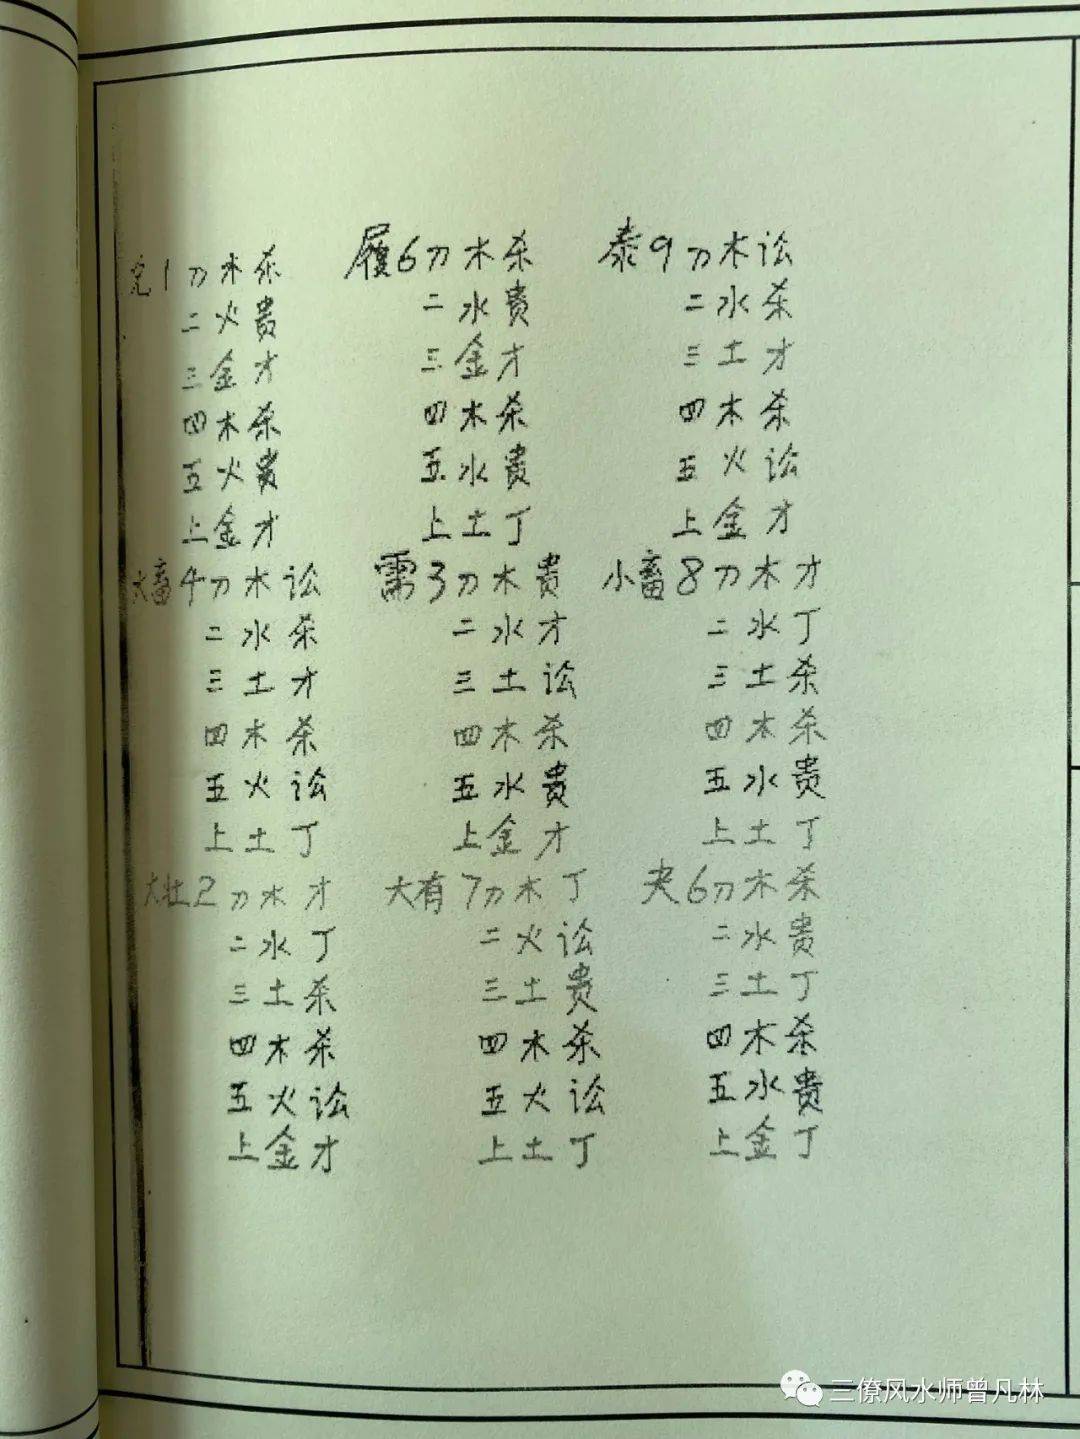 兑1刀木杀
二火贵
三金才
四木杀
五火贵
上金才
履6刀木杀
二水贵
三金才
四木杀
五水贵
上土丁
泰9刀木讼
二水杀
三土才
四木杀
五火讼
上金才
大畜4刀木讼
二水杀
三土才
四木杀
五火讼
上土丁
需3刀木贵
二水才
三土讼
四木杀
五水贵
上金才
小畜8刀木才
二水丁
三土杀
四木杀
五水贵
上土丁
大壮2刀木才
二水丁
三土杀
四木杀
五火讼
上金才
大有7刀木丁
二火讼
三土贵
四木杀
五火讼
上土丁
夬6刀木杀
二水贵
三土丁
四木杀
五水贵
上金丁
三僚风水师曾凡林